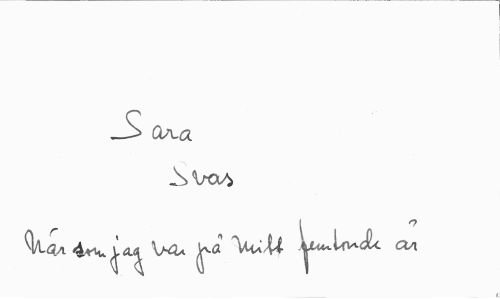 Sara
Svas
När som jag var på mitt femtonde år